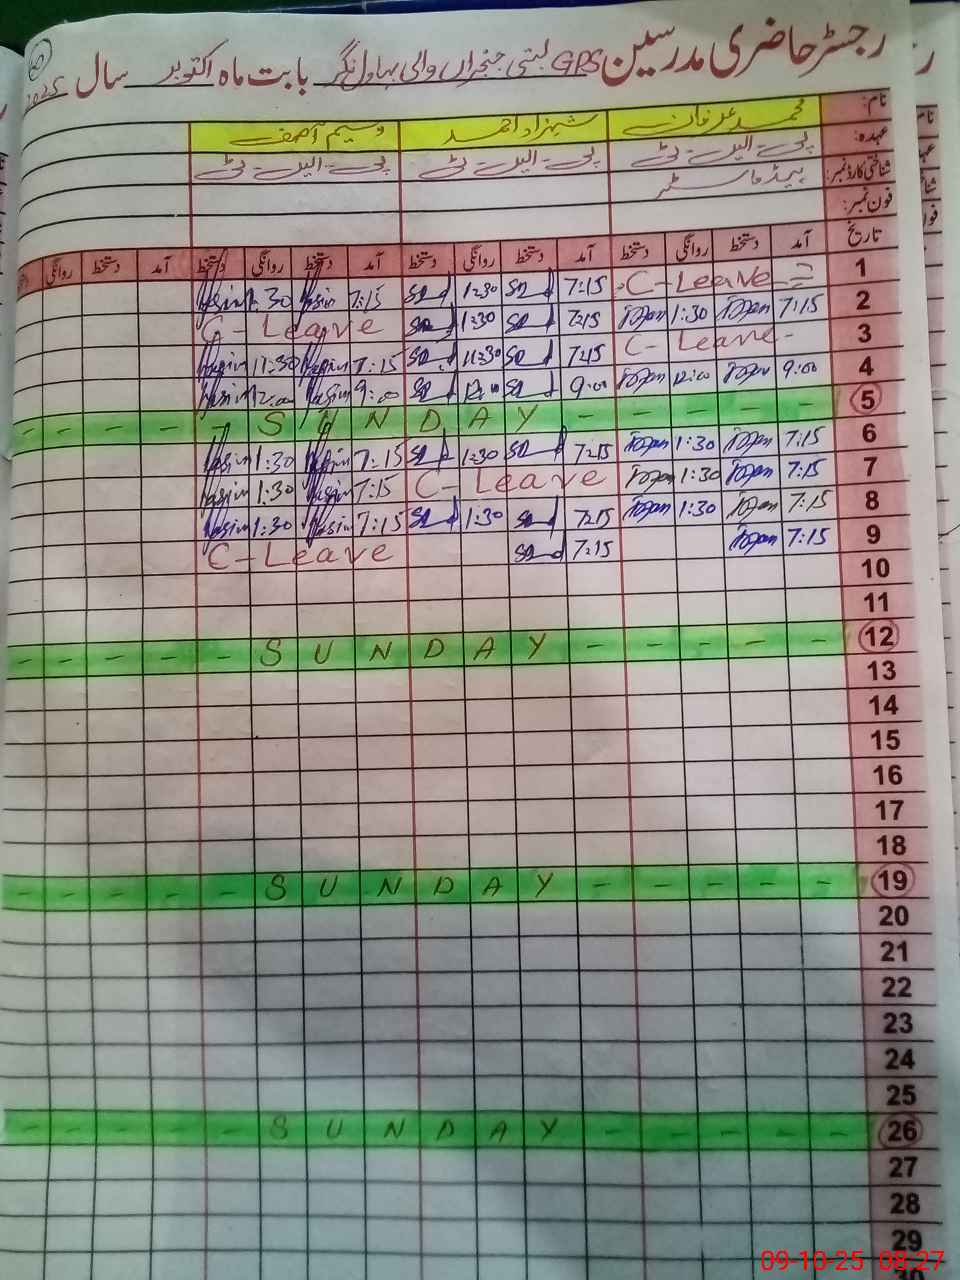 رجسٹر حاضری مدرسین GPS بستی جنجراں والی بہاولنگر بابت ماہ اکتوبر سال 2025
نام: محمد عرفان شہزاد احمد وسیم آصف
عہدہ: پی-ایس-ٹی پی-ایس-ٹی پی-ایس-ٹی
شناختی کارڈ نمبر: ہیڈ ماسٹر
فون نمبر:
تاریخ آمد دستخط روانگی دستخط آمد دستخط روانگی دستخط آمد دستخط روانگی دستخط آمد دستخط روانگی
1 C-Leave 7:15 1:30 7:15 1:30
2 7:15 1:30 7:15 1:30 C-Leave
3 C-Leave 7:15 11:30 7:15 11:30
4 9:00 12:00 9:00 9:00 12:00
5 SUNDAY
6 7:15 1:30 7:15 1:30 7:15 1:30
7 7:15 1:30 C-Leave 7:15 1:30
8 7:15 1:30 7:15 1:30 7:15 1:30
9 7:15 7:15 C-Leave
10
11
12 SUNDAY
13
14
15
16
17
18
19 SUNDAY
20
21
22
23
24
25
26 SUNDAY
27
28
29
09-10-25 08:27